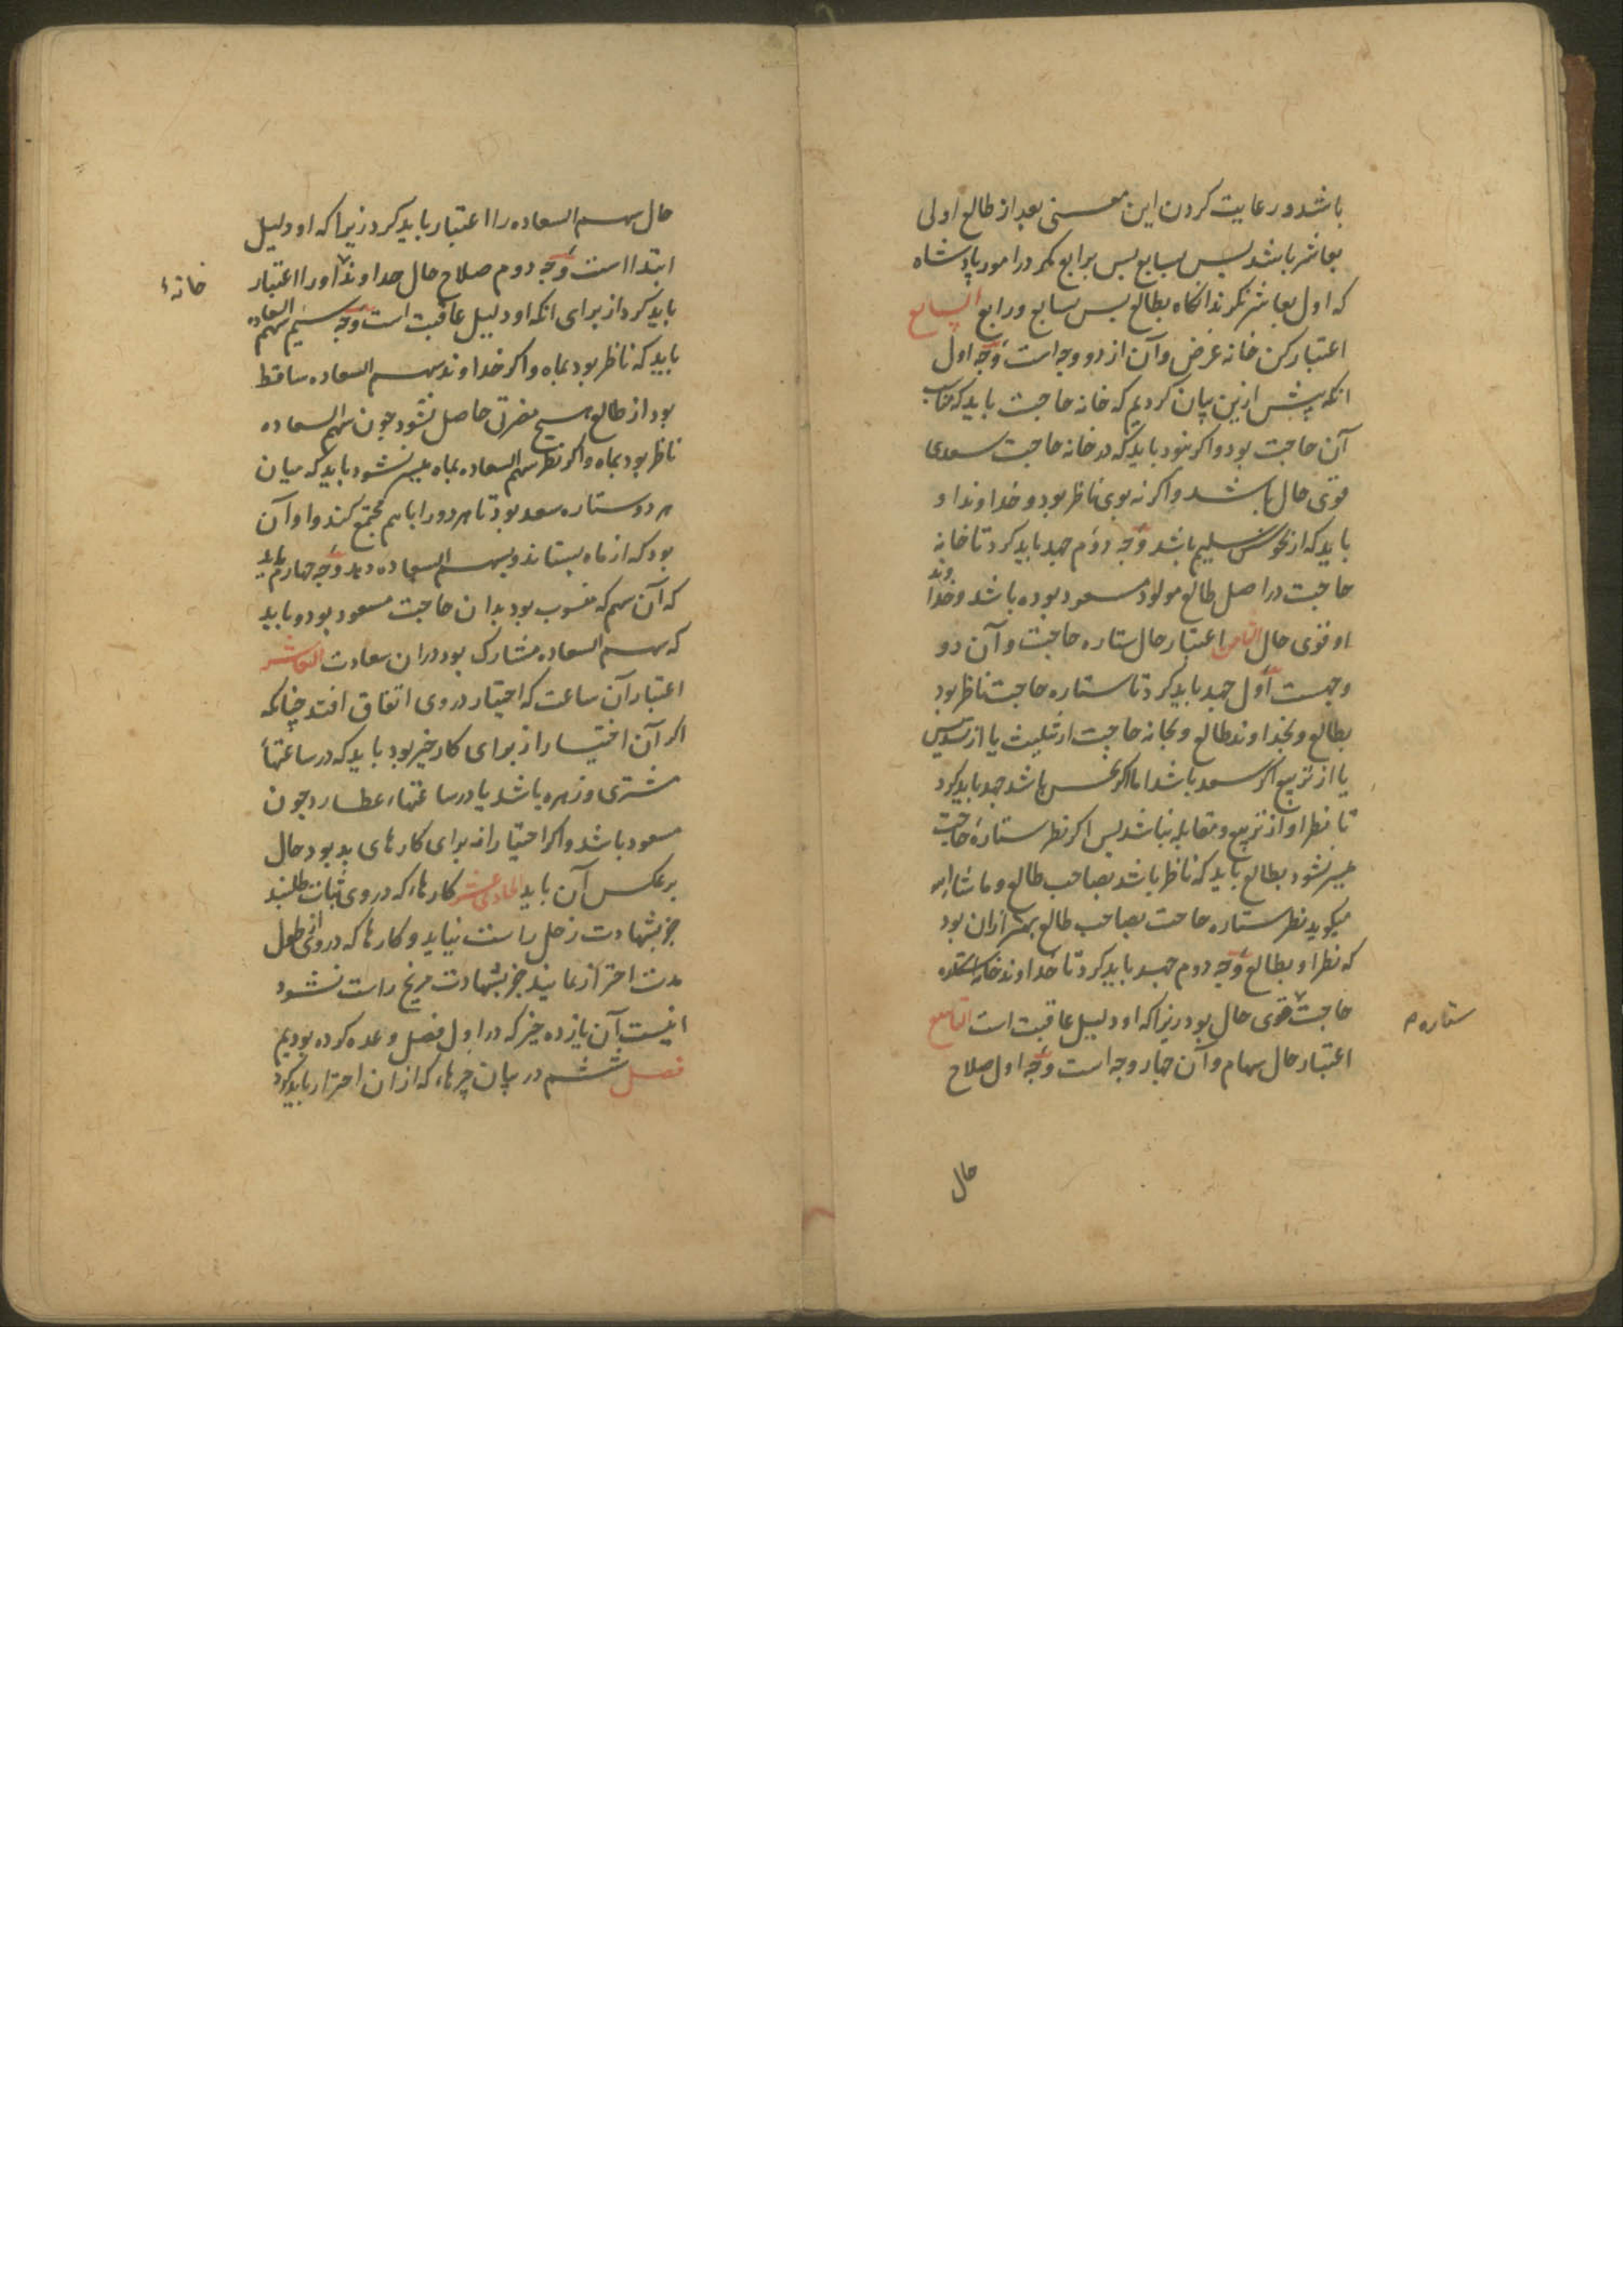 باشد و رعایت کردن این معنی بعد از طالع اولی
بعاشر باشد پس بسابع پس برابع مگر در امور پادشاه
که اول بعاشر نکرند انکاه بطالع پس بسابع و رابع السابع
اعتبار کن خانه غرض و آن از دو وجه است وجه اول
انکه پیش ازین بیان کردیم که خانه حاجت باید که
آن حاجت بود و اکر نبود باید که در خانه حاجت سعدی
قوی حال باشد و اکر نه بوی ناظر بود و خداوند او
باید که از نحوس سلیم باشد وجه دوم جهد باید کرد تا خانه
حاجت در اصل طالع مولود مسعود بوده باشد و خداوند
او قوی حال الثامن اعتبار حال ستاره حاجت و آن دو
وجهست اول جهد باید کرد تا ستاره حاجت ناظر بود
بطالع و بخداوند طالع و بخانه حاجت از تثلیث یا از تسدیس
یا از تربیع اکر سعد باشد اما اکر نحس باشد جهد باید کرد
تا نظر او از تربیع و مقابله نباشد پس اکر نظر ستاره حاجت
میسر نشود بطالع باید که ناظر باشد بصاحب طالع و ما شاء الله
میکوید نظر ستاره حاجت بصاحب طالع بهتر ازان بود
که نظر او بطالع وجه دوم جهد باید کرد تا خداوند خانه
حاجت قوی حال بود زیرا که او دلیل عاقبت است التاسع
ستاره
اعتبار حال سهام و آن چهار وجه است وجه اول صلاح
حال
حال سهم السعاده را اعتبار باید کرد زیرا که او دلیل
ابتدا است وجه دوم صلاح حال خداوند او را اعتبار
خانهٔ
باید کرد از برای انکه او دلیل عاقبت است وجه سیم سهم السعاده
باید که ناظر بود بماه و اکر خداوند سهم السعاده ساقط
بود از طالع هیچ مضرتی حاصل نشود چون سهم السعاده
ناظر بود بماه و اکر نظر سهم السعاده بماه میسر نشود باید که میان
هر دو ستاره سعد بود تا هر دو را باهم مجتمع کند و او آن
بود که از ماه بستاند و بسهم السعاده دهد وجه چهارم باید
که آن سهم که منسوب بود بدان حاجت مسعود بود و باید
که سهم السعاده مشارک بود دران سعادت العاشر
اعتبار آن ساعت که اختیار در وی اتفاق افتد چنانکه
اکر آن اختیار از برای کار خیر بود باید که در ساعتهاء
مشتری و زهره باشد یا در ساعتهاء عطارد چون
مسعود باشد و اکر اختیار از برای کارهای بد بود حال
برعکس آن باید الحادی عشر کارهاء که در وی ثبات طلبند
جز بشهادت زحل راست نیاید و کارها که در وی از طول
مدت احتراز نمایند جز بشهادت مریخ راست نشود
اینست آن یازده چیز که در اول فصل وعده کرده بودیم
فصل ششم در بیان چیزهاء که ازان احتراز باید کرد